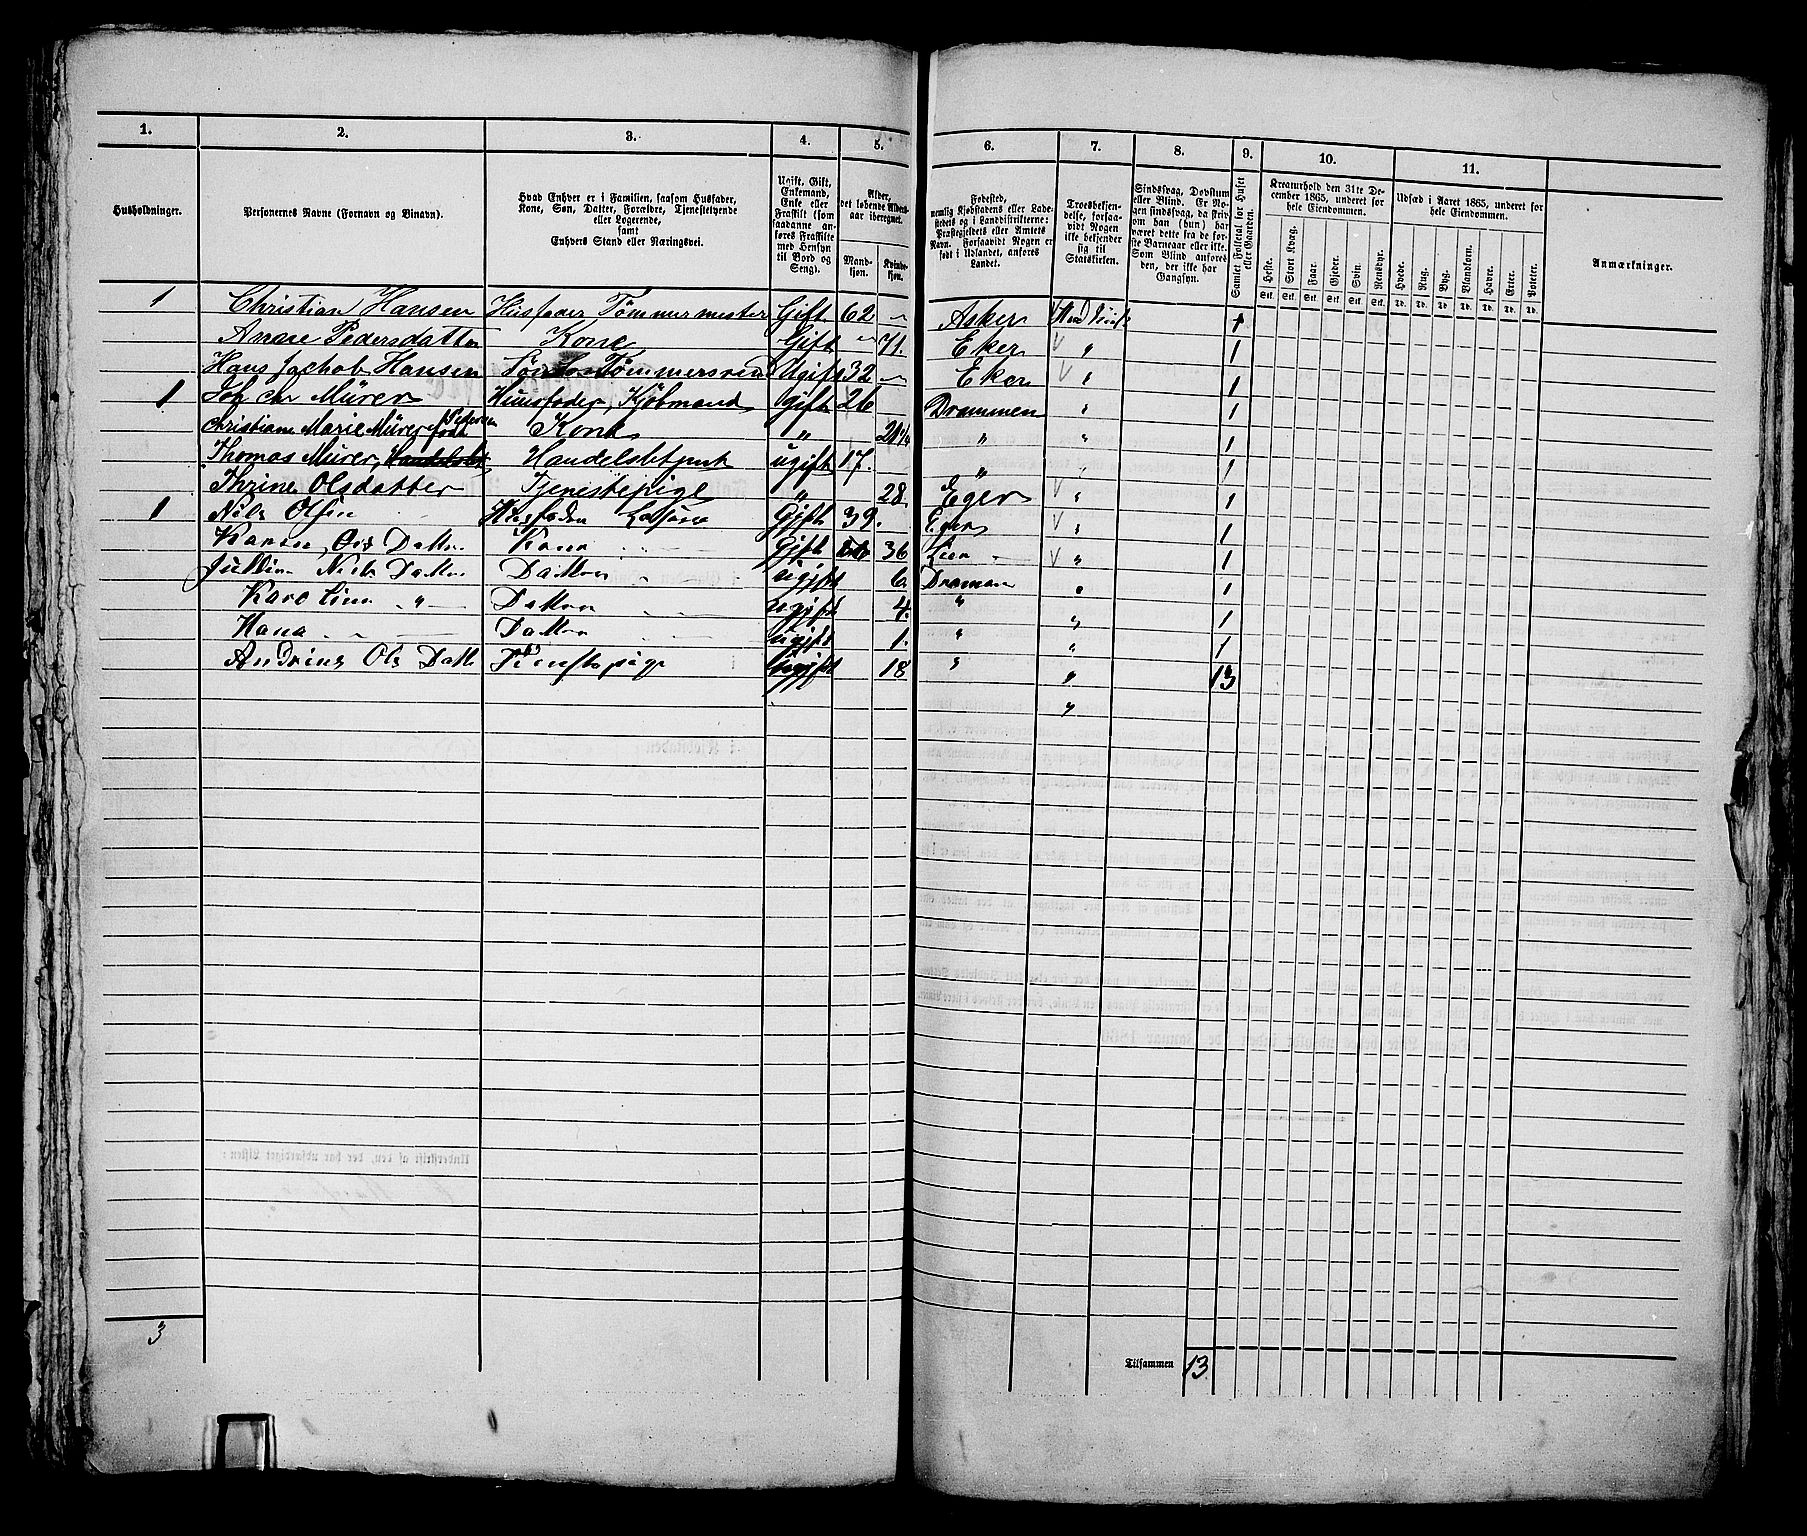 1. 2. 3. 4. 5. 6. 7. 8. 9. 10. 11.
Husholdninger.
Personernes Navne (Fornavn og Binavn).
Hvad Enhver er i Familien, saasom Husfader, Kone, Søn, Datter, Forældre, Tjenestetyende eller Logerende, samt Enhvers Stand eller Næringsvei.
Ugift, Gift, Enkemand, Enke eller Fraskilt (som saadanne anføres Fraskilte med Hensyn til Bord og Seng).
Alder, det løbende Aldersaar iberegnet.
Mandkjøn. Kvindekjøn.
Fødested, nemlig Kjøbstadens eller Ladestedets og i Landdistrikterne: Præstegjeldets eller Amtets Navn. Forsaavidt Nogen er født i Udlandet, anføres Landet.
Troesbekjendelse, forsaavidt Nogen ikke bekjender sig til Statskirken.
Sindssvag, Døvstum eller Blind. Er Nogen sindssvag, da skriv om han (hun) har været dette fra de første Barneaar eller ikke. Som Blind anføres den, der ikke har Gangsyn.
Samlet Folketal for Huset eller Gaarden.
Kreaturhold den 31te December 1865, underet for hele Eiendommen.
Heste. Stort Kvæg. Faar. Gjeder. Svin. Rensdyr.
Udsæd i Aaret 1865, underet for hele Eiendommen.
Hvede. Rug. Byg. Blandkorn. Havre. Erter. Poteter.
Anmærkninger.
Stk. Stk. Stk. Stk. Stk. Stk. Td. Td. Td. Td. Td. Td. Td.
1 Christian Hansen Husfader Tømmermester Gift 62 Asker 1
Anne Pedersdatter Kone Gift " 71. Eker " 1
Hans Jachob Hansen Søn Tømmersvend Ugift 32 Eker " 1
1 Mürer Huusfader, Kjöbmand gift 26 Drammen " 1
Christiane Marie Mürer født Pedersen Kone " " " 1
Thomas Mürer, Handelsbetjent ugift 17. " " 1
Thrine Olsdatter Tjenestepige " 28. Eger " 1
1 Nils Olsen Husfader Gift 39. Eger " 1
Karen Ols Datter Kone Gift 36 Lier " 1
Nils Datter Datter ugift 6. Dramen " 1
Karoline " Datter ugift 4. " " 1
Hana Datter ugift 1. " " 1
Andrine Ols Datter Tienstepige ugift 18 " " 13
"
3
Tilsammen 13